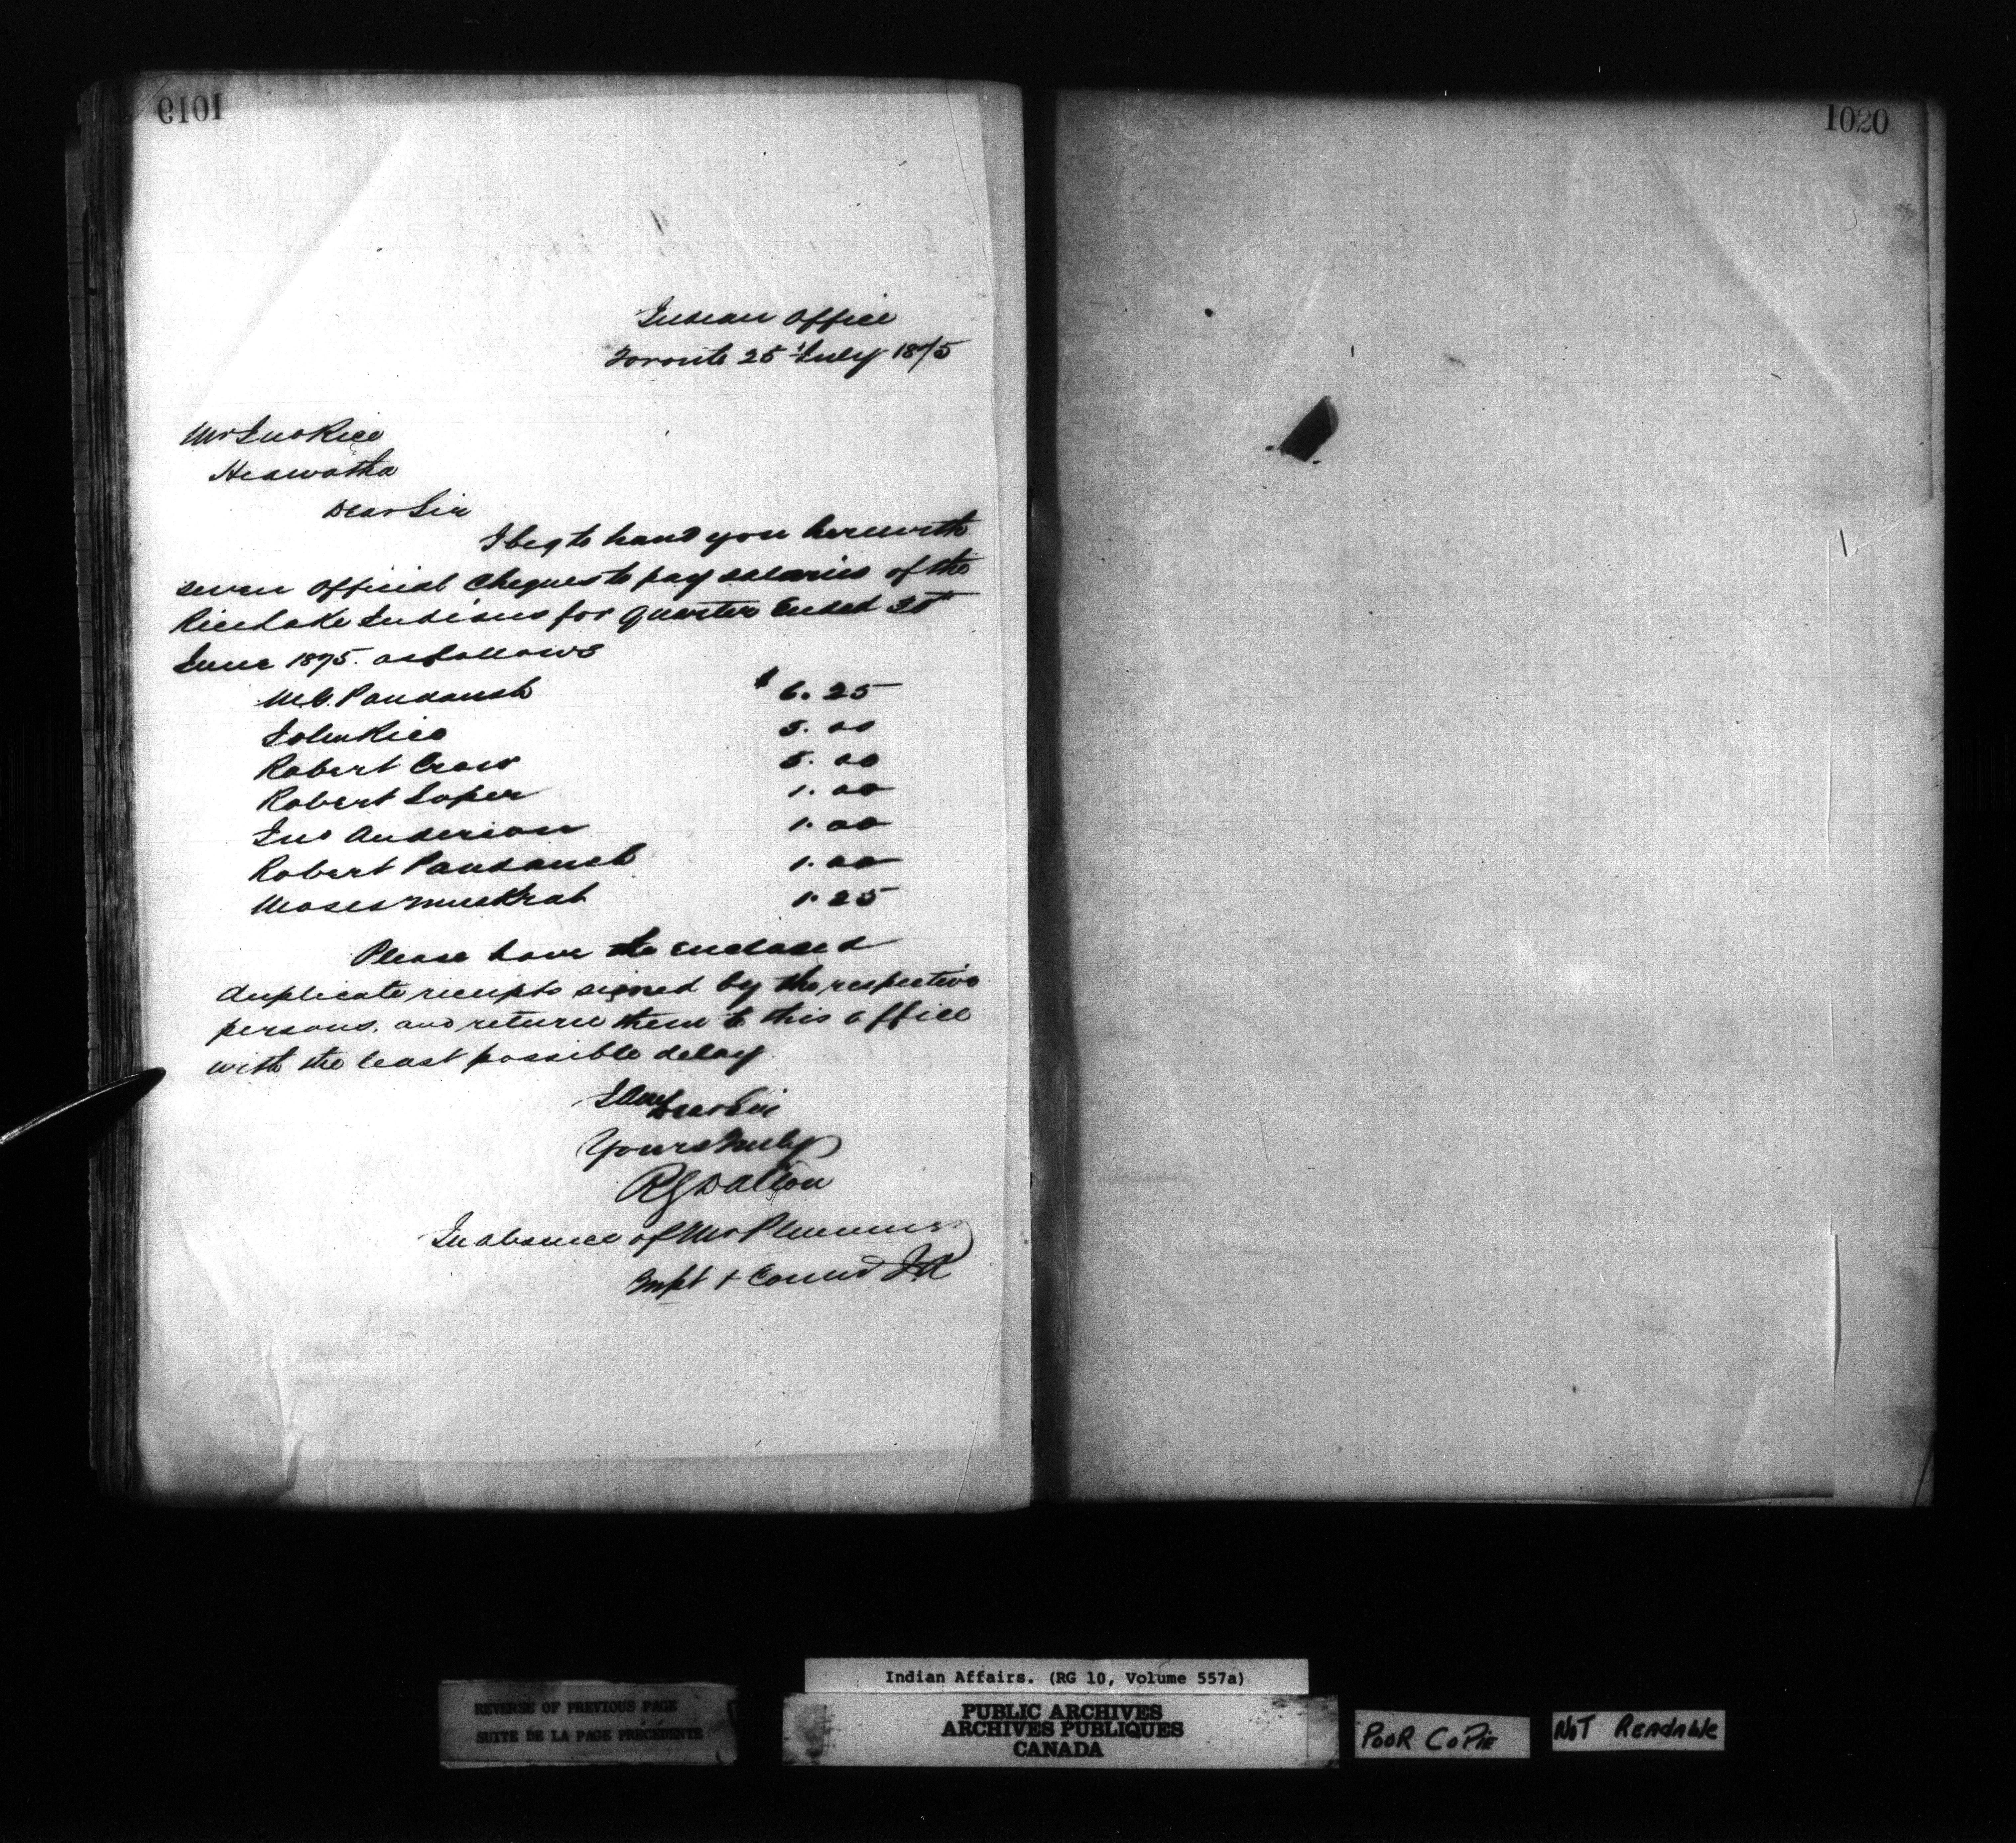 1019
1020
Indian Office
Toronto 25 July 1875
Mr Jno Rice
Hiawatha
Dear Sir
I beg to hand you herewith
seven Official Cheques to pay salaries of the
Rice Lake Indians for Quarter Ended 30th
June 1875. as follows
M. G. Paudaush $ 6.25
John Rice 5.00
Robert Crow 5.00
Robert Soper 1.00
Jno Anderson 1.00
Robert Paudaush 1.00
Moses Muskrat 1.25
Please have the enclosed
duplicate receipts signed by the respective
persons, and return them to this office
with the least possible delay.
I am Dear Sir
Yours truly
R G Dalton
In absence of Mr Plummer
Supt & Commr I A
Indian Affairs. (RG 10, Volume 557a)
REVERSE OF PREVIOUS PAGE
SUITE DE LA PAGE PRÉCÉDENTE
PUBLIC ARCHIVES
ARCHIVES PUBLIQUES
CANADA
POOR COPIE
NOT READABLE